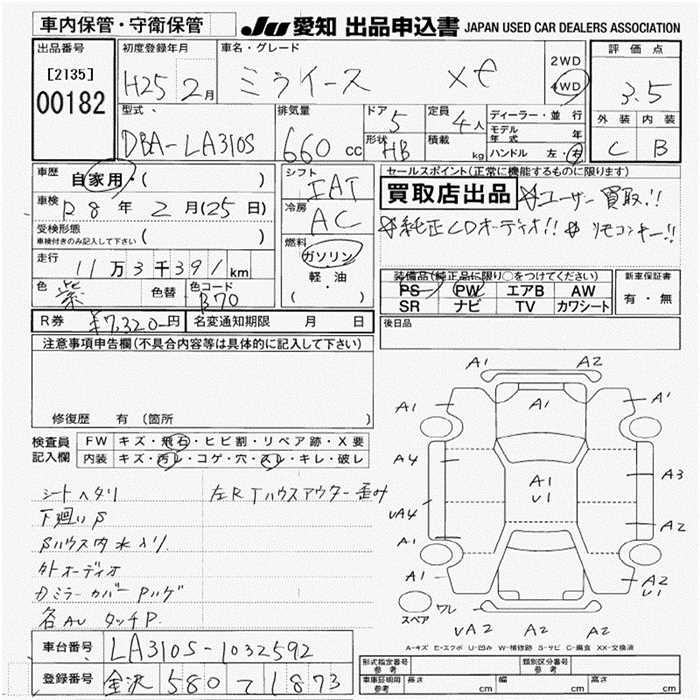 車内保管・守衛保管
JU 愛知 出品申込書 JAPAN USED CAR DEALERS ASSOCIATION
出品番号
[2135]
00182
初度登録年月
H25 2月
車名・グレード
ミライース xe
2WD
4WD
評価点
3.5
外装 内装
C B
型式
DBA-LA310S
排気量
660 cc
ドア
5
形状
HB
定員
4人
積載
kg
ディーラー・並行
モデル年式 年
ハンドル 左・右
車歴
自家用・( )
車検
R8年2月(25日)
受検形態
車検付きのみ記入して下さい ( )
走行
11万3千391km
色
紫
色替
色コード
B70
シフト
IAT
冷房
AC
燃料
ガソリン
軽・油
( )
セールスポイント(正常に機能するものに限ります)
買取店出品 ユーザー買取!!
純正CDオーディオ!! リモコンキー!!
装備品(純正品に限り○をつけてください)
PS PW エアB AW
SR ナビ TV カワシート
新車保証書
有・無
後日品
R券 ¥7,320-円 名変通知期限 月 日
注意事項申告欄(不具合内容等は具体的に記入して下さい)
修復歴 有 (箇所 )
検査員
記入欄
FW キズ・飛石・ヒビ割・リペア跡・X要
内装 キズ・汚レ・コゲ・穴・スレ・キレ・破レ
シートヘタリ
左RTハウスアウター歪み
下廻りP
Pハウス内水入リ
外オーディオ
カミラーカバーPハゲ
各AUタッチP.
A1 A2
A1 A1 A1'
A4 A1 A3
U1
UA4 A2
A1
A1 A2
U1
スペア ワレ
UA2 A2
A-キズ E-エクボ U-凹み W-補修跡 S-サビ C-腐食 XX-交換済
車台番号 LA310S-1032592
登録番号 金沢 580 て 1873
形式指定番号
参考
類別区分番号
参考
車庫証明用
参考
長さ cm 幅 cm 高さ cm